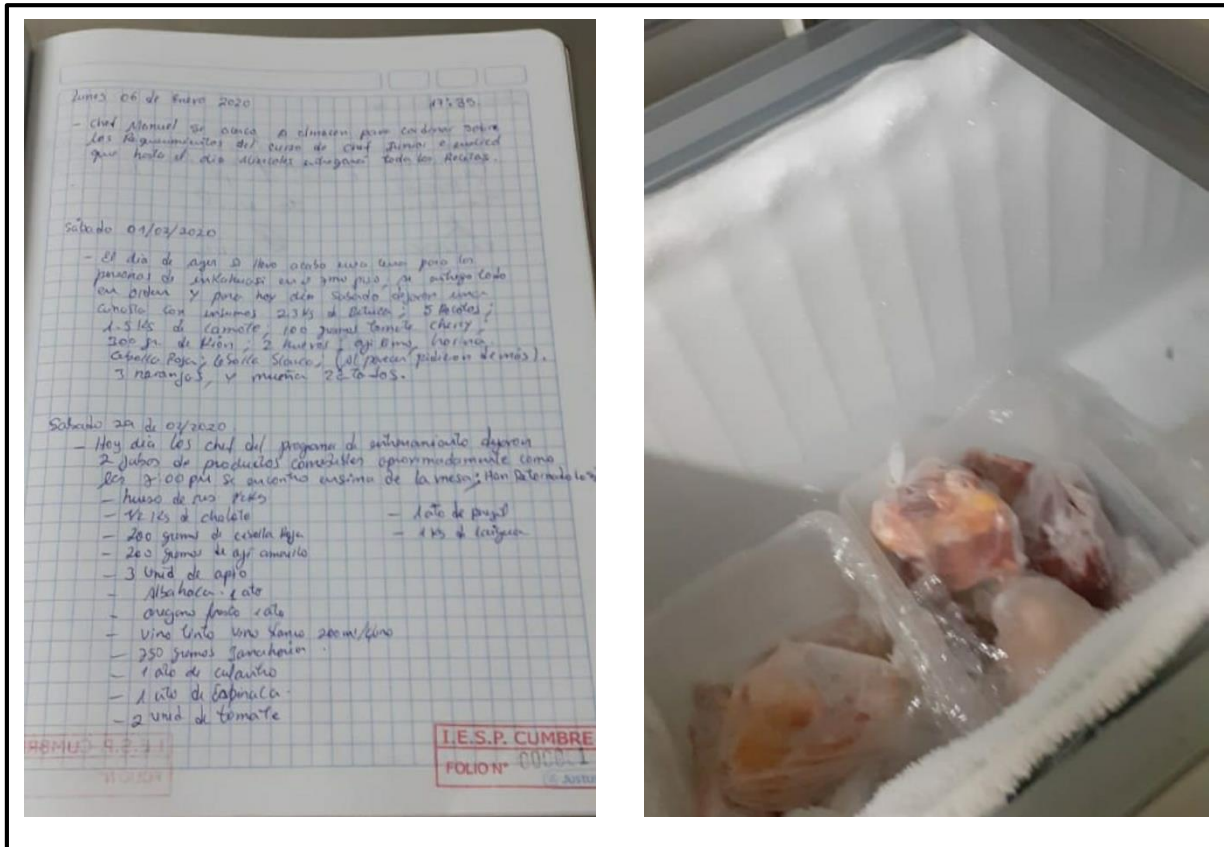 Lunes 06 de Enero 2020 17:35
- Chef Manuel se acerca a almacen para cordinar sobre
los Requerimientos del curso de chef Junior e
que hasta el dia miercoles entregara todas las Recetas.
Sabado 01/02/2020
- El dia de ayer se llevo acabo una cena para las
personas de inkahuasi en el piso, se entrego todo
en orden y para hoy dia Sabado dejaron una
con insumos 2.3 kg de ; 5 ;
1.5 kg de camote; 100 gramos tomate cherry;
300 gr. de Kión; 2 huevos; aji ; harina
Cebolla Roja; cebolla Blanca; (al parecer pidieron demás).
3 naranjas, y muña 2 atados.
Sabado 29 de 02/2020
- Hoy dia los chef del programa de entrenamiento dejaron
2 de productos comestibles aproximadamente como
las 7:00 pm se encontro ensima de la mesa; Han Retornado los
- hueso de res
- 1/2 kg de
- 200 gramos de cebolla Roja
- 200 gramos de aji amarillo
- 3 unid de apio
- Albahaca 1 ato
- oregano fresco 1 ato
- vino tinto vino blanco 200 ml/
- 250 gramos Zanahoria
- 1 ato de culantro
- 1 ato de Espinaca
- 2 unid de tomate
- 1 ato de perejil
- 1 kg de
I.E.S.P. CUMBRE
FOLIO N° 1